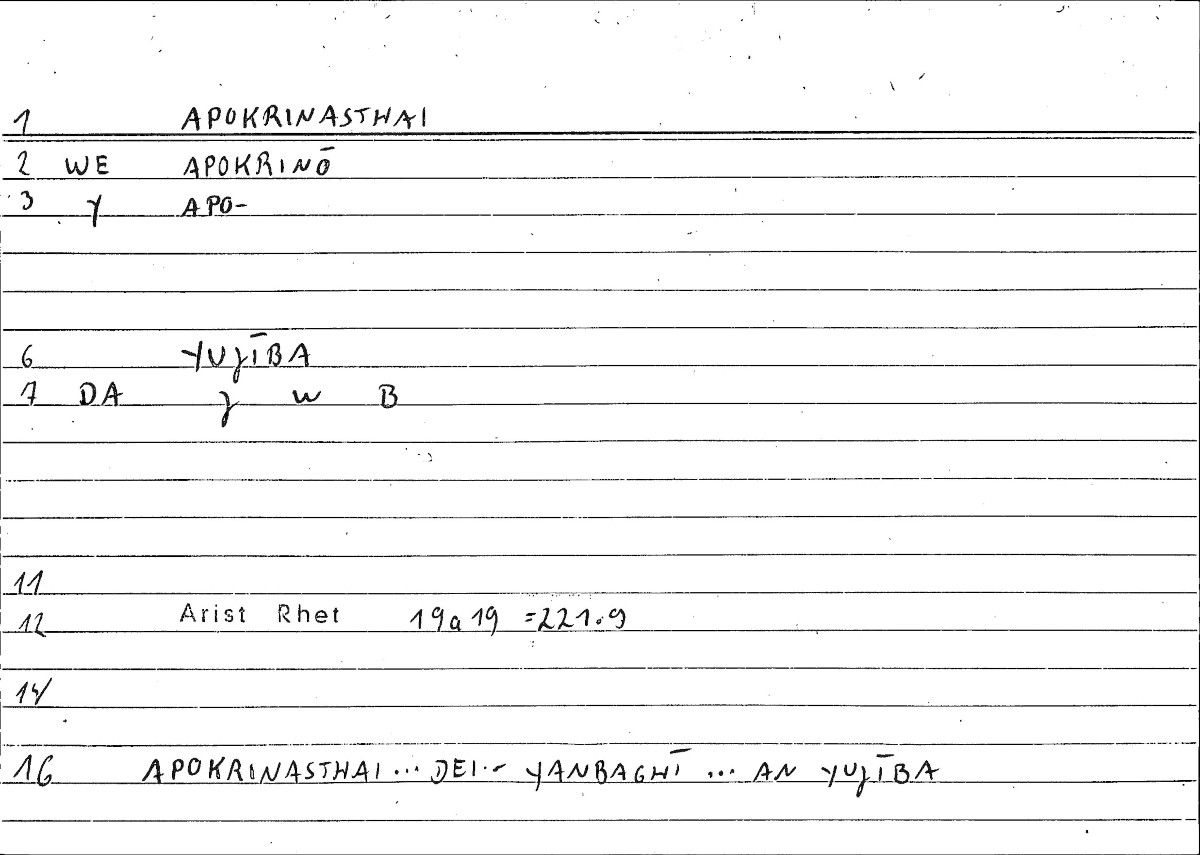 1 APOKRINASTHAI
2 WE APOKRINŌ
3 Y APO-
6 YUJĪBA
7 DA J W B
11
12 Arist Rhet 19a19 =221.9
14
16 APOKRINASTHAI... DEI... YANBAGHĪ ... AN YUJĪBA